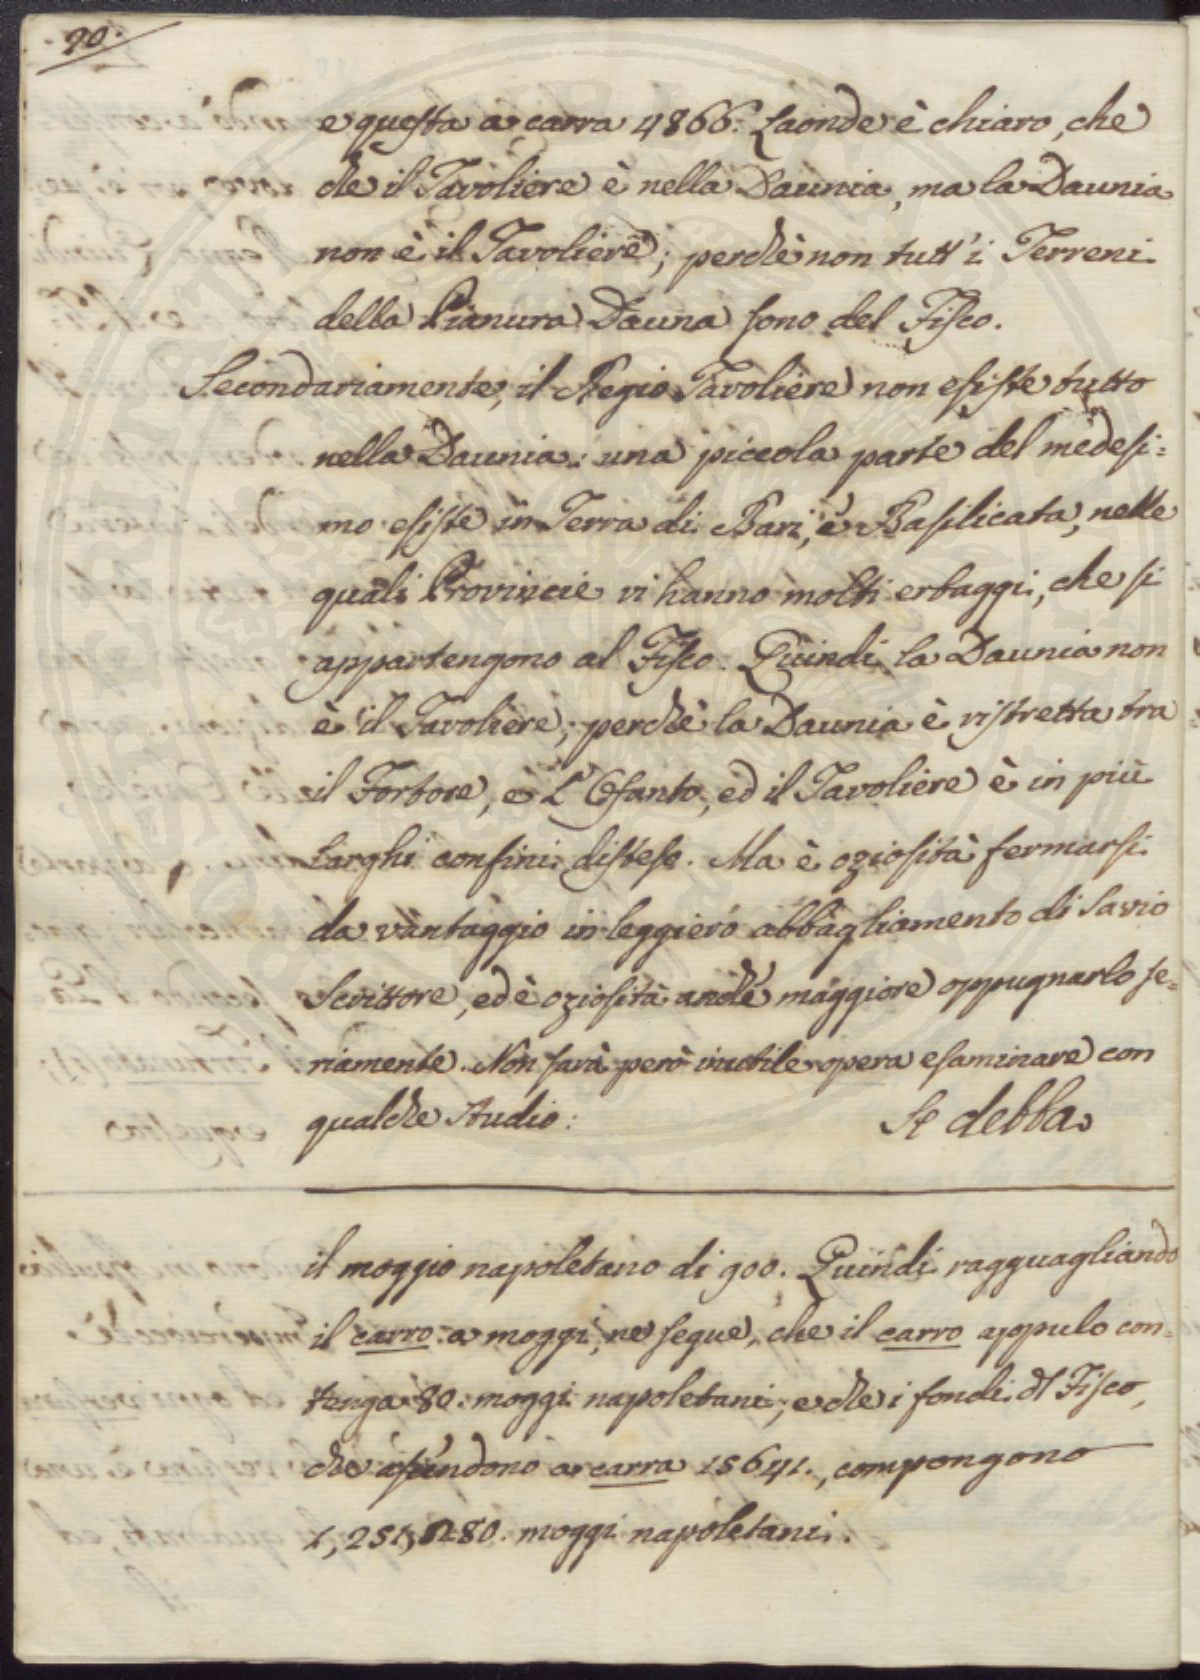 20.
e questa a carra 4866. Laonde è chiaro, che
che il Tavoliere è nella Daunia, ma la Daunia
non è il Tavoliere; perchè non tutt'i Terreni
della Pianura Dauna sono del Fisco.
Secondariamente, il Regio Tavoliere non esiste tutto
nella Daunia: una piccola parte del medesi=
mo esiste in Terra di Bari, e Basilicata, nelle
quali Provincie vi hanno molti erbaggi, che si
appartengono al Fisco. Quindi la Daunia non
è il Tavoliere; perchè la Daunia è ristretta tra
il Fortore, e L'Ofanto, ed il Tavoliere è in più
larghi confini disteso. Ma è oziosità fermarsi
da vantaggio in leggiero abbagliamento di Savio
Scrittore, ed è oziosità anche maggiore oppugnarlo se=
riamente. Non sarà però inutile opera esaminare con
qualche studio: Se debba
il moggio napoletano di 900. Quindi ragguagliando
il carro a moggi, ne segue, che il carro appulo con=
tenga 80. moggi napoletani; e che i fondi dl Fisco,
che ascendono a carra 15641., compongono
1,251,280. moggi napoletani.